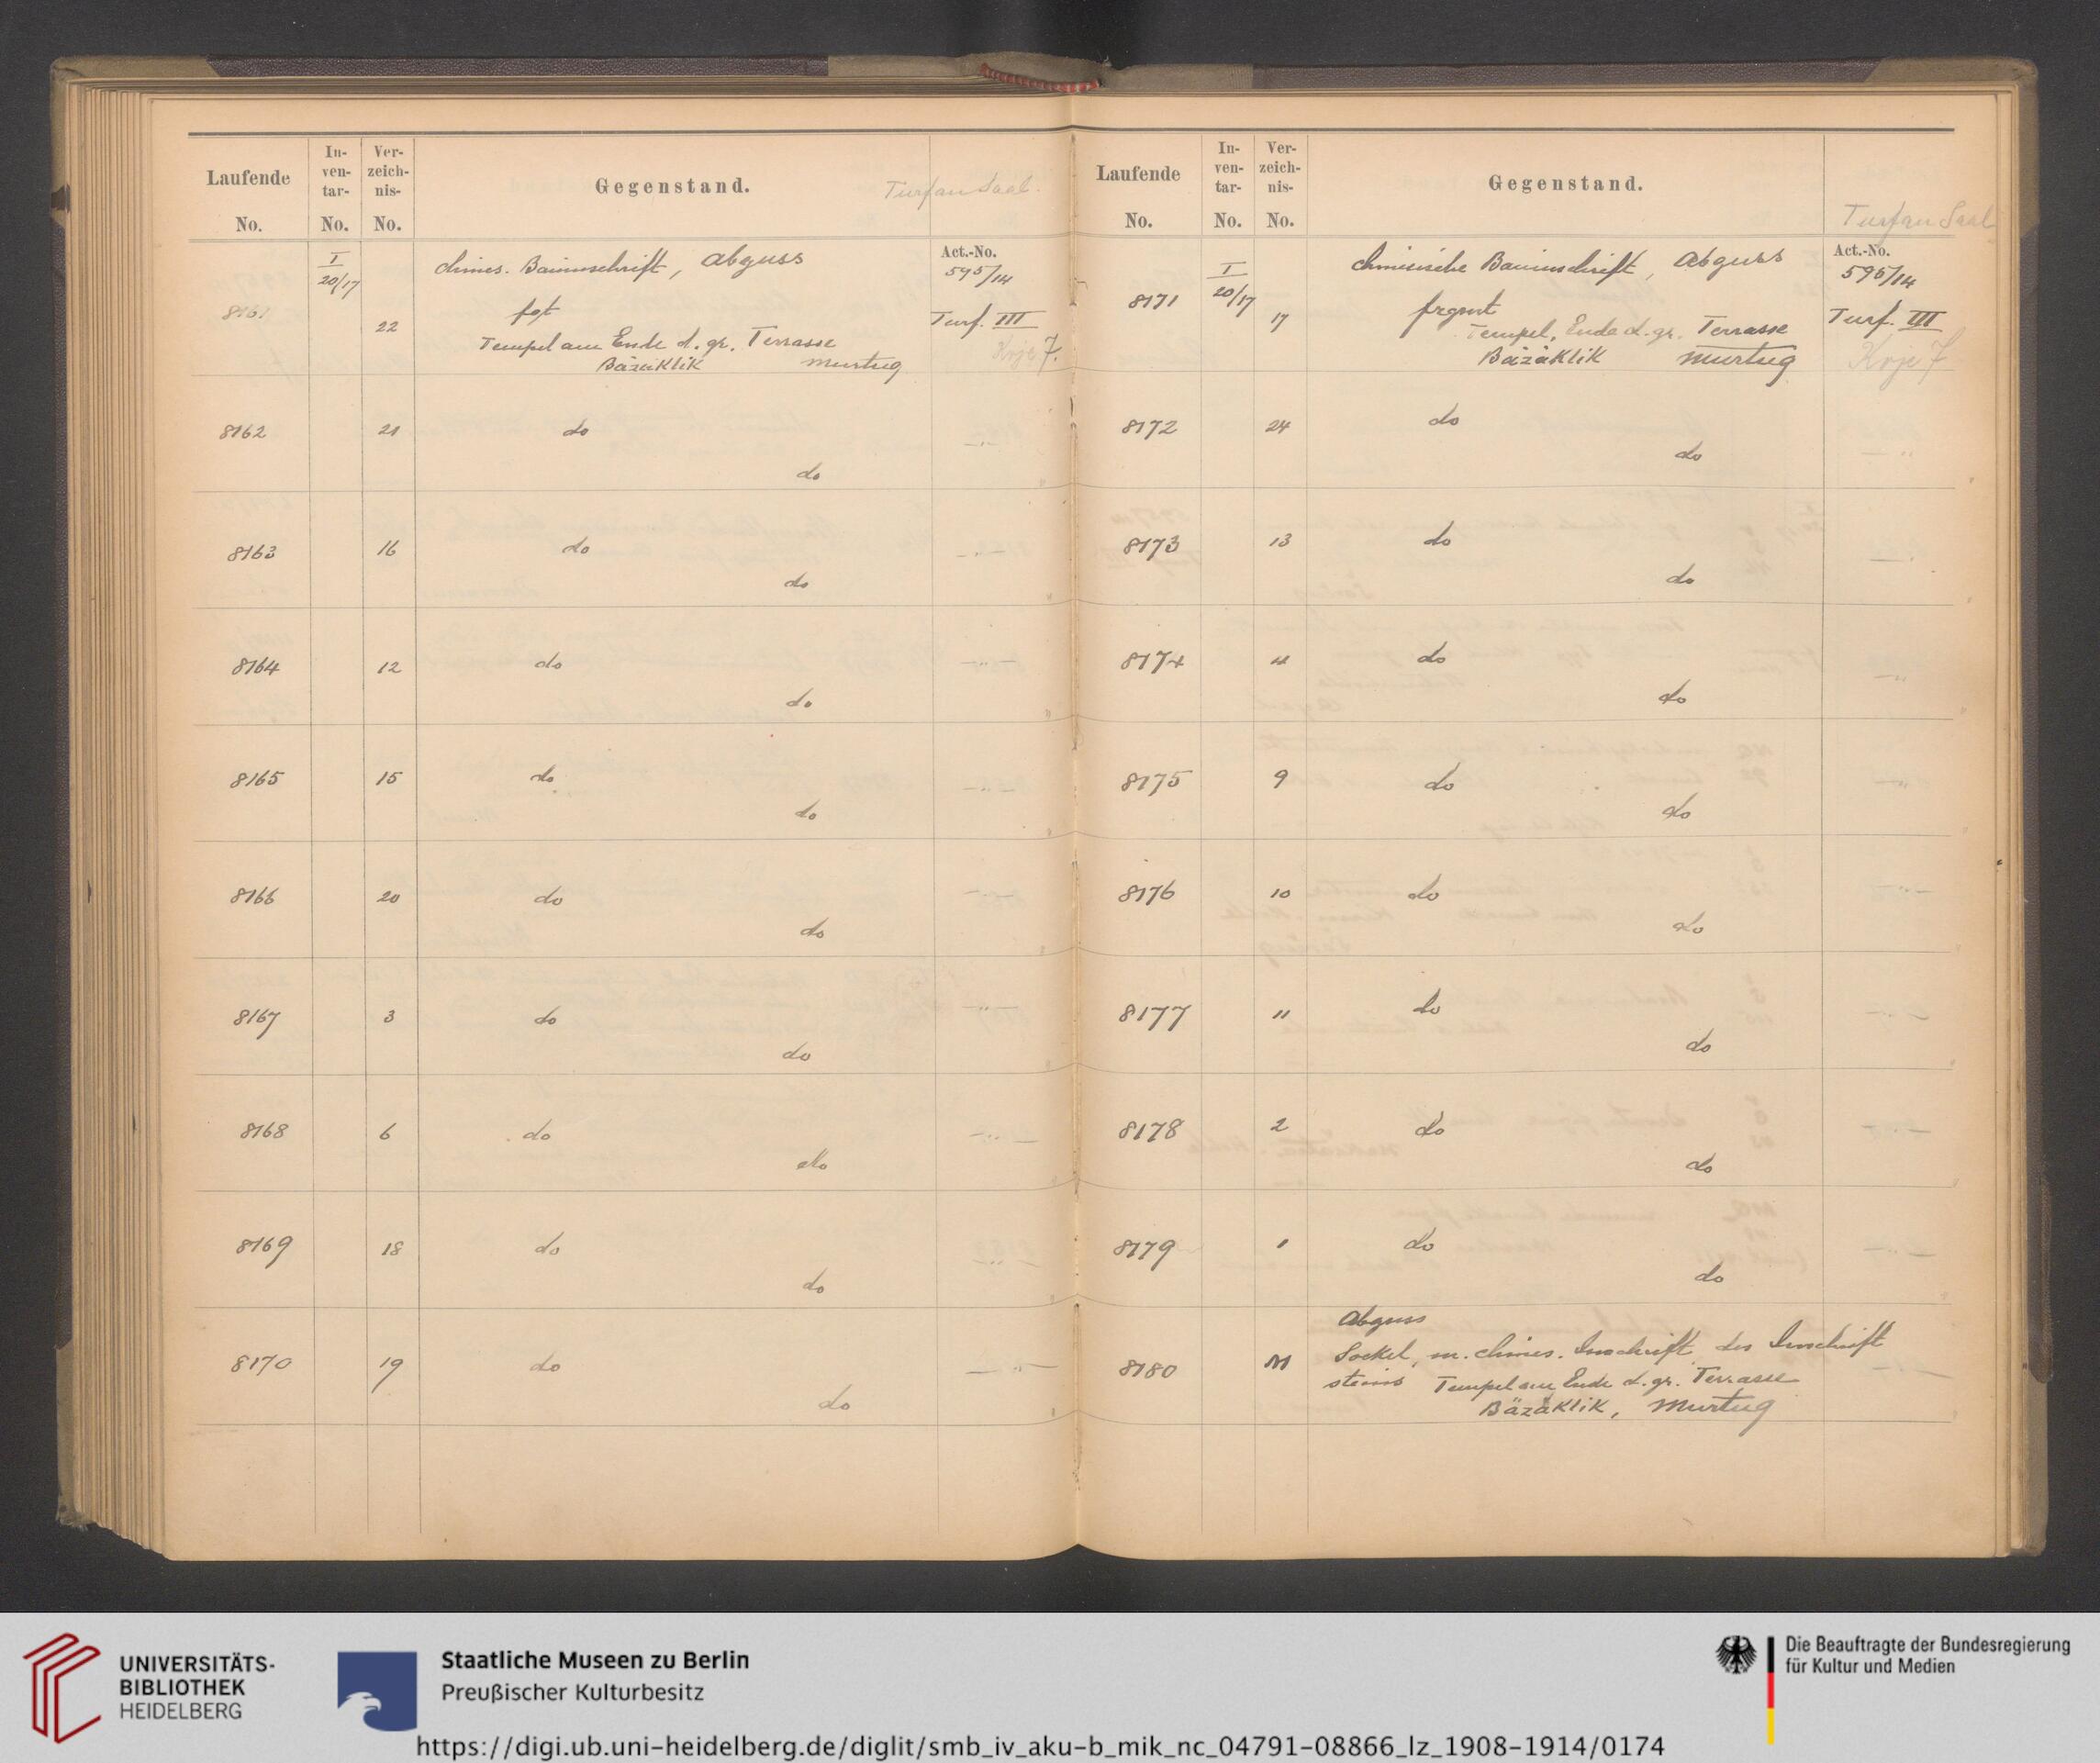 Laufende No.
In-ven-tar-No.
Ver-zeich-nis-No.
Gegenstand.
Turfan Saal.
Act.-No.
I
20/17
chines. Bauinschrift, Abguss
595/14
8161
22
fgt
Turf. III
Tempel am Ende d. gr. Terrasse
Bäzäklik Murtug
8162 21 do
do
8163 16 do
do
8164 12 do
do
8165 15 do
do
8166 20 do
do
8167 3 do
do
8168 6 do
do
8169 18 do
do
8170 19 do
do
Laufende No.
In-ven-tar-No.
Ver-zeich-nis-No.
Gegenstand.
Turfan Saal
Act.-No.
I
20/17
chinesische Bauinschrift, Abguss
595/14
8171
17
frgmt
Turf. III
Tempel, Ende d. gr. Terrasse
Bäzäklik Murtug
8172 24 do
do
8173 13 do
do
8174 do
do
8175 9 do
do
8176 10 do
do
8177 11 do
do
8178 2 do
do
8179 1 do
do
Abguss
8180 Sockel, m. chines. Inschrift des Inschrift
steins Tempel am Ende d. gr. Terrasse
Bäzäklik, Murtug
UNIVERSITÄTS-
BIBLIOTHEK
HEIDELBERG
Staatliche Museen zu Berlin
Preußischer Kulturbesitz
Die Beauftragte der Bundesregierung
für Kultur und Medien
https://digi.ub.uni-heidelberg.de/diglit/smb_iv_aku-b_mik_nc_04791-08866_lz_1908-1914/0174